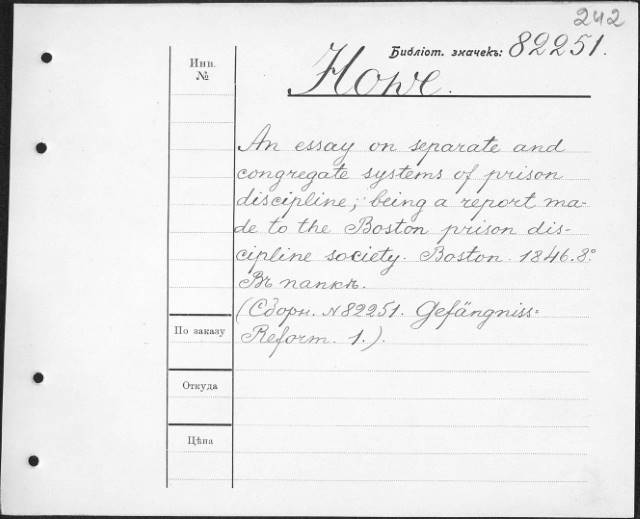 242
Библіот. значекъ: 82251.
Инв.
№
Howe.
An essay on separate and
congregate systems of prison
discipline; being a report ma-
de to the Boston prison dis-
cipline society. Boston. 1846. 8°.
Въ папкѣ.
(Сборн. N 82251. Gefängniss=
Reform. 1.).
По заказу
Откуда
Цѣна